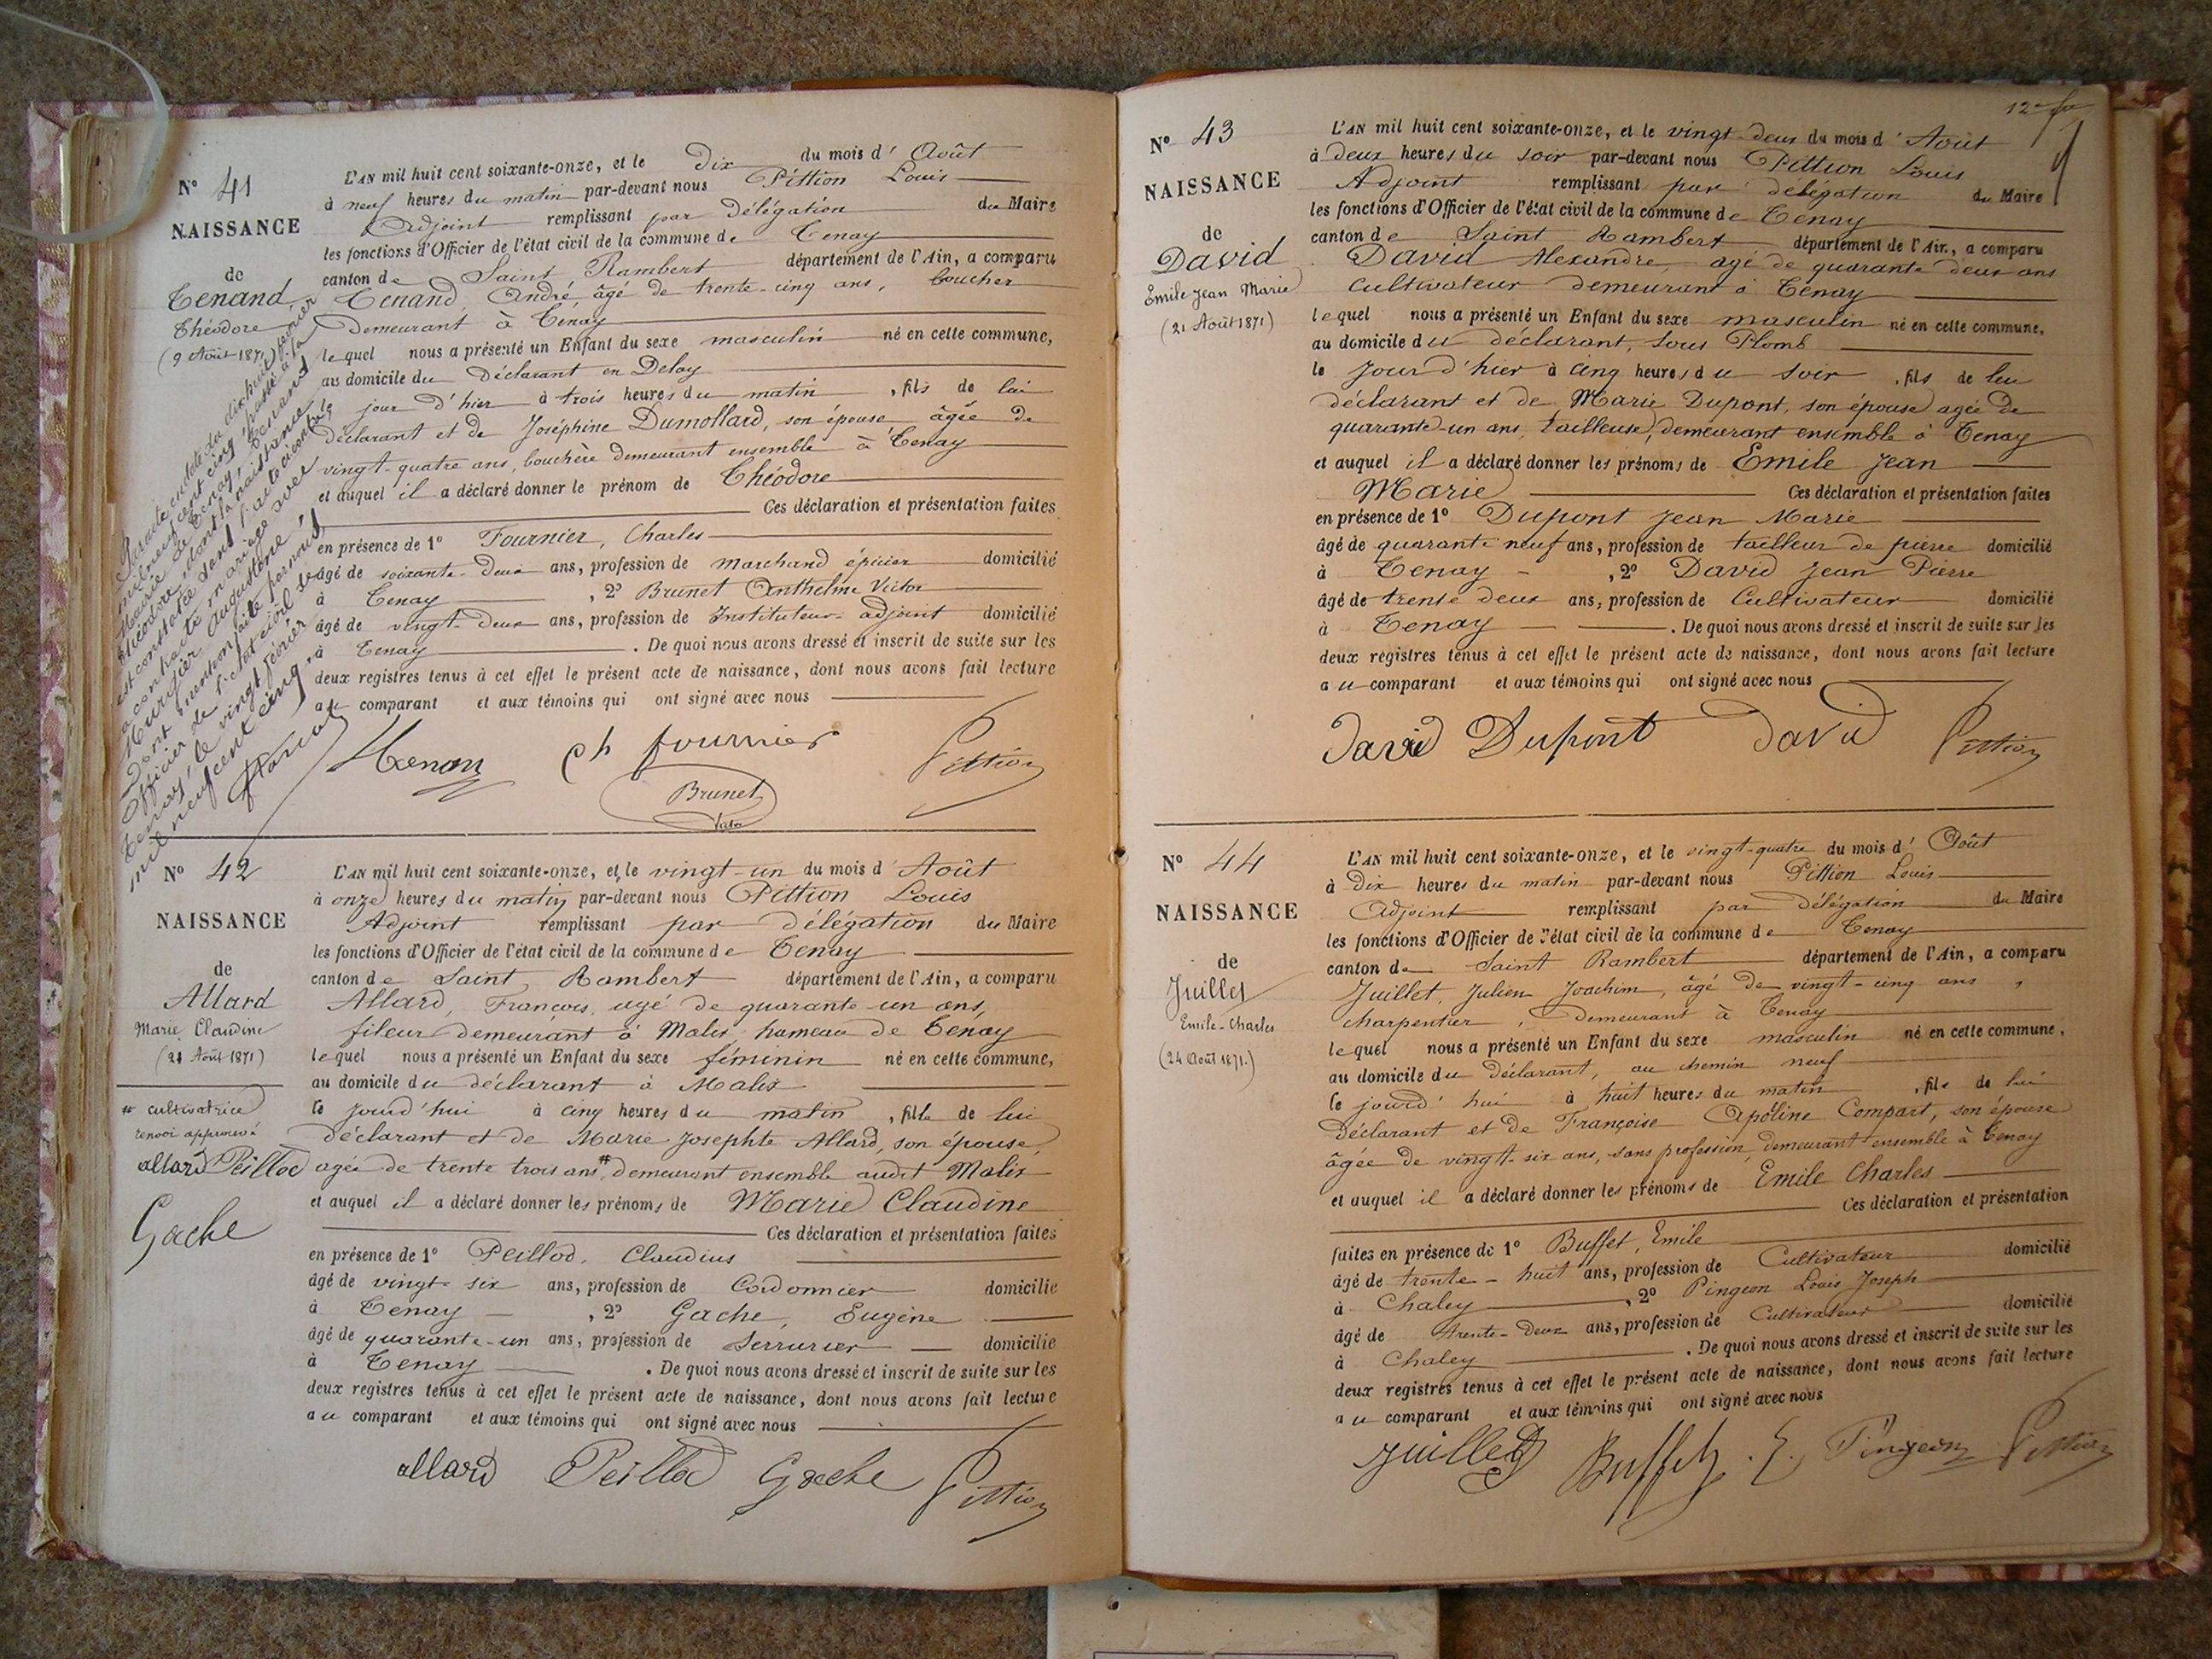 N° 41
NAISSANCE
de
Tenand
Théodore
(9 Août 1871)
Par acte en date du dix huit février
mil neuf cent cinq, passé à la
Mairie de Tenay, Tenand
Théodore, dont la naissance
est constatée dans l'acte ci-contre
a contracté mariage avec
Augustine
Dont mention faite par nous
Officier de l'état civil de
Tenay le vingt février
mil neuf cent cinq.
L'AN mil huit cent soixante-onze, et le dix du mois d' Août
à neuf heures du matin par-devant nous Pittion Louis
Adjoint remplissant par délégation du Maire
les fonctions d'Officier de l'état civil de la commune de Tenay
canton de Saint Rambert département de l'Ain, a comparu
Tenand André, âgé de trente-cinq ans, boucher
demeurant à Tenay
lequel nous a présenté un Enfant du sexe masculin né en cette commune,
au domicile du déclarant en Delay
le jour d'hier à trois heures du matin, fils de lui
déclarant et de Joséphine Dumollard, son épouse âgée de
vingt-quatre ans, bouchère demeurant ensemble à Tenay
et auquel il a déclaré donner le prénom de Théodore
Ces déclaration et présentation faites
en présence de 1° Fournier, Charles
âgé de soixante-deux ans, profession de marchand épicier domicilié
à Tenay, 2° Brunet Anthelme Victor
âgé de vingt-deux ans, profession de Instituteur-adjoint domicilié
à Tenay. De quoi nous avons dressé et inscrit de suite sur les
deux registres tenus à cet effet le présent acte de naissance, dont nous avons fait lecture
au comparant et aux témoins qui ont signé avec nous
Ch fournier
Brunet
Victor
Pittion
N° 42
NAISSANCE
de
Allard
Marie Claudine
(21 Août 1871)
# cultivatrice
renvoi approuvé
allard Peillod
Gache
L'AN mil huit cent soixante-onze, et le vingt-un du mois d' Août
à onze heures du matin par-devant nous Pittion Louis
Adjoint remplissant par délégation du Maire
les fonctions d'Officier de l'état civil de la commune de Tenay
canton de Saint Rambert département de l'Ain, a comparu
Allard, François, agé de quarante-un ans,
fileur demeurant à Malix hameau de Tenay
lequel nous a présenté un Enfant du sexe féminin né en cette commune,
au domicile du déclarant à Malix
le jourd'hui à cinq heures du matin, fille de lui
déclarant et de Marie Josephte Allard, son épouse,
agée de trente trois ans # demeurant ensemble audit Malix
et auquel il a déclaré donner les prénoms de Marie Claudine
Ces déclaration et présentation faites
en présence de 1° Peillod, Claudius
âgé de vingt-six ans, profession de Cordonnier domicilié
à Tenay, 2° Gache, Eugène
âgé de quarante-un ans, profession de Serrurier domicilié
à Tenay. De quoi nous avons dressé et inscrit de suite sur les
deux registres tenus à cet effet le présent acte de naissance, dont nous avons fait lecture
au comparant et aux témoins qui ont signé avec nous
allard Peillod Gache Pittion
N° 43
NAISSANCE
de
David
Emile Jean Marie
(21 Août 1871)
L'AN mil huit cent soixante-onze, et le vingt-deux du mois d' Août
à deux heures du soir par-devant nous Pittion Louis
Adjoint remplissant par délégation du Maire
les fonctions d'Officier de l'état civil de la commune de Tenay
canton de Saint Rambert département de l'Ain, a comparu
David Alexandre, agé de quarante deux ans
Cultivateur demeurant à Tenay
lequel nous a présenté un Enfant du sexe masculin né en cette commune,
au domicile du déclarant, sous Plomb
le jour d'hier à cinq heures du soir, fils de lui
déclarant et de Marie Dupont, son épouse agée de
quarante-un ans, tailleuse, demeurant ensemble à Tenay
et auquel il a déclaré donner les prénoms de Emile Jean
Marie Ces déclaration et présentation faites
en présence de 1° Dupont Jean Marie
âgé de quarante neuf ans, profession de tailleur de pierre domicilié
à Tenay, 2° David Jean Pierre
âgé de trente deux ans, profession de Cultivateur domicilié
à Tenay. De quoi nous avons dressé et inscrit de suite sur les
deux registres tenus à cet effet le présent acte de naissance, dont nous avons fait lecture
au comparant et aux témoins qui ont signé avec nous
David Dupont David Pittion
N° 44
NAISSANCE
de
Juillet
Emile-Charles
(24 Août 1871.)
L'AN mil huit cent soixante-onze, et le vingt-quatre du mois d' Août
à dix heures du matin par-devant nous Pittion Louis
Adjoint remplissant par délégation du Maire
les fonctions d'Officier de l'état civil de la commune de Tenay
canton de Saint Rambert département de l'Ain, a comparu
Juillet, Julien Joachim, âgé de vingt-cinq ans,
charpentier, demeurant à Tenay
lequel nous a présenté un Enfant du sexe masculin né en cette commune,
au domicile du déclarant, au chemin neuf
le jourd'hui à huit heures du matin, fils de lui
déclarant et de Françoise Apoline Compart, son épouse
âgée de vingt-six ans, sans profession, demeurant ensemble à Tenay
et auquel il a déclaré donner les prénoms de Emile Charles
Ces déclaration et présentation
faites en présence de 1° Buffet, Emile
âgé de trente-huit ans, profession de Cultivateur domicilié
à Chaley, 2° Pingeon Louis Joseph
âgé de trente-deux ans, profession de Cultivateur domicilié
à Chaley. De quoi nous avons dressé et inscrit de suite sur les
deux registres tenus à cet effet le présent acte de naissance, dont nous avons fait lecture
au comparant et aux témoins qui ont signé avec nous
Juillet Buffet E. Pingeon Pittion